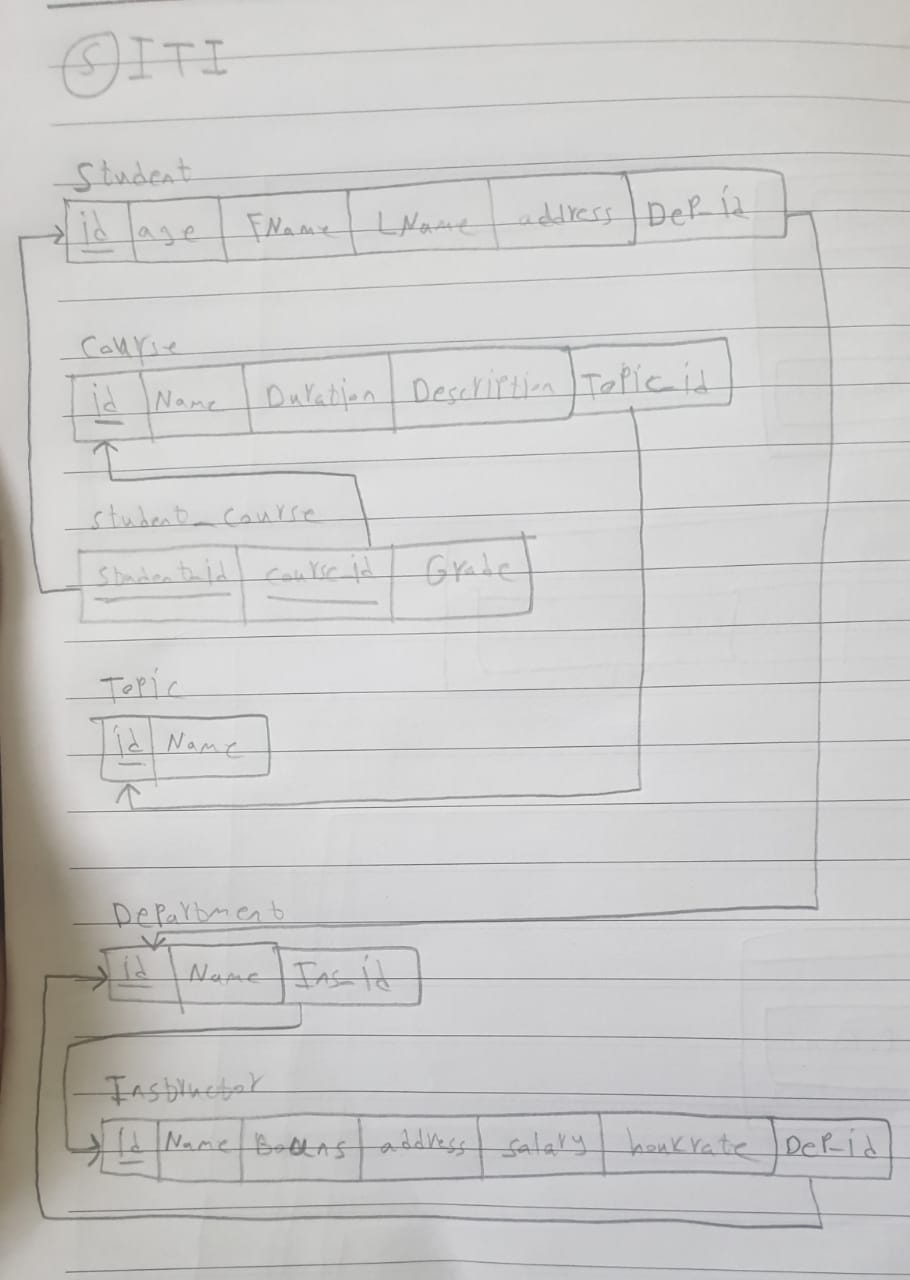 (5) ITI
Student
id age FName LName address Dep_id
Course
id Name Duration Description Topic_id
Student_Course
Student_id Course_id Grade
Topic
id Name
Department
id Name Ins_id
Instructor
Id Name address salary hourrate Dep_id